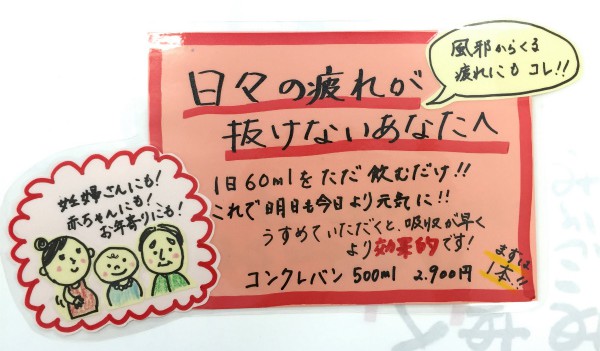 日々の疲れが
抜けないあなたへ
風邪からくる
疲れにもコレ!!
1日60mlをただ飲むだけ!!
これで明日も今日より元気に!!
うすめていただくと、吸収が早く
より効果的です!
コンクレバン 500ml 2.900円
まずは
1本!!
妊婦さんにも!
赤ちゃんにも!
お年寄りにも!